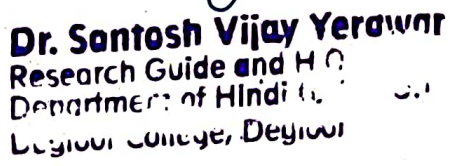 Dr. Santosh Vijay Yerawar
Research Guide and H O
Department of Hindi
College,